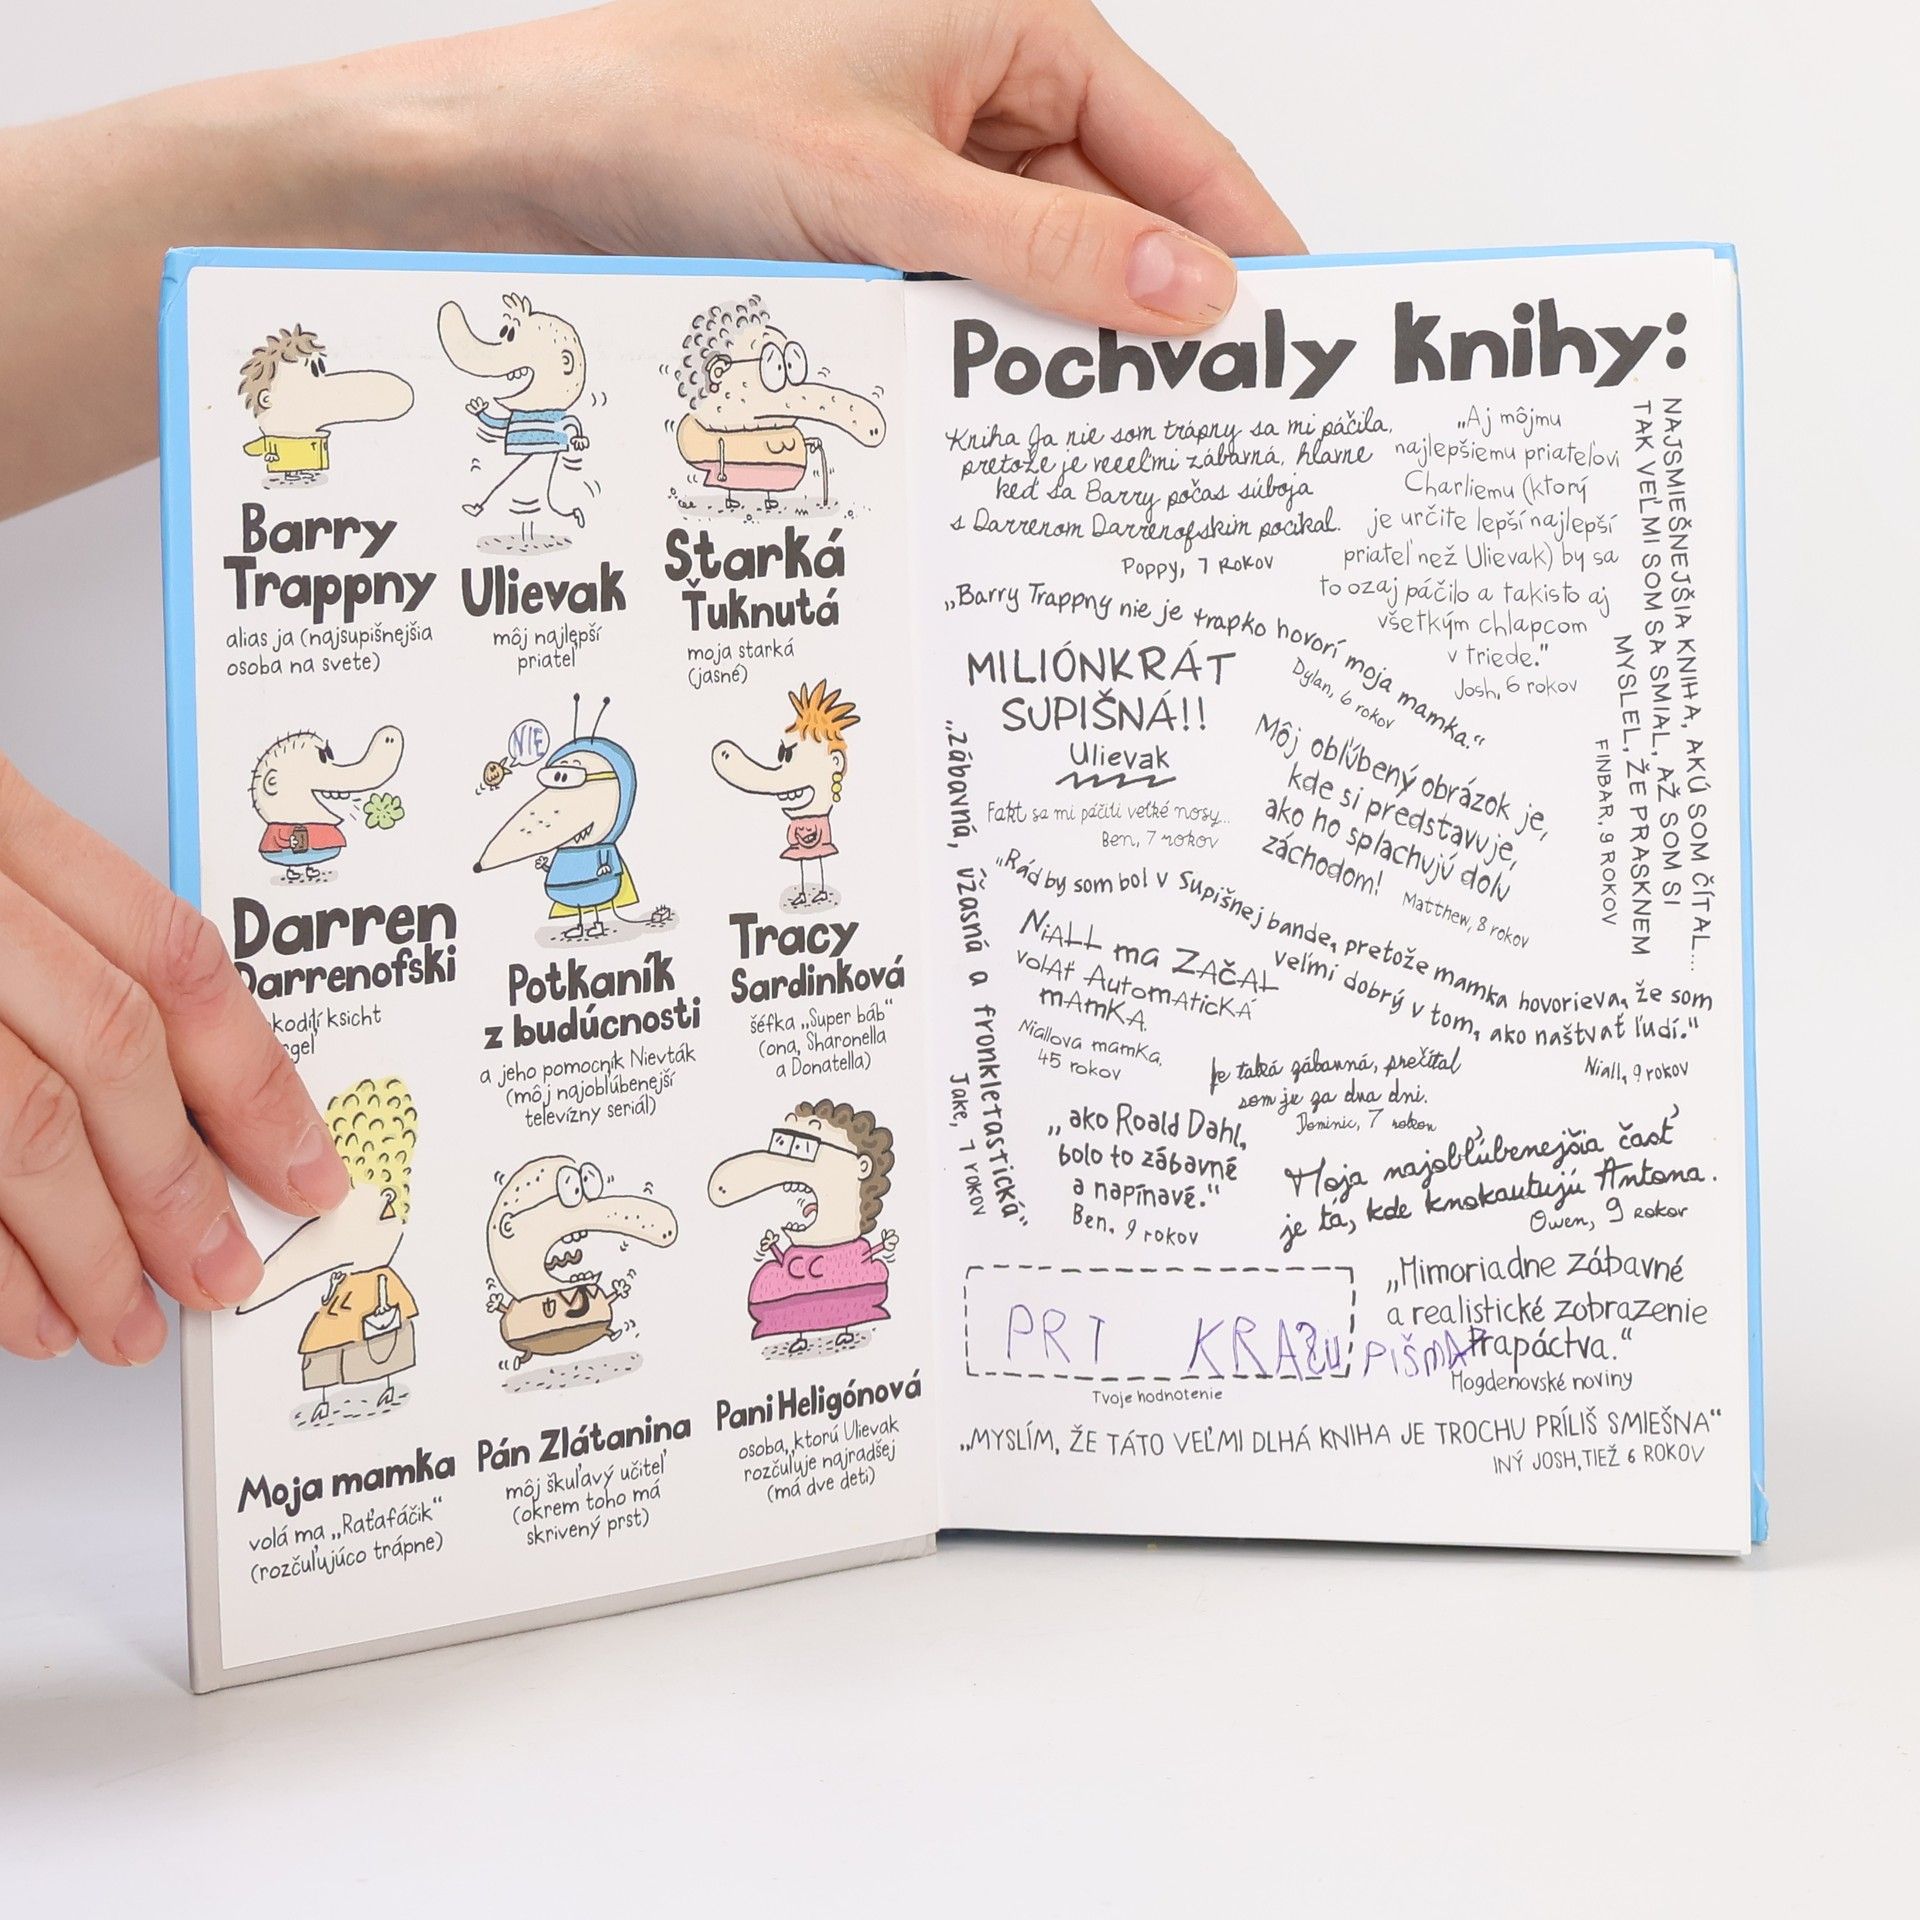 Barry
Trappny
alias ja (najsupišnejšia
osoba na svete)
Ulievak
môj najlepší
priateľ
Starká
Ťuknutá
moja starká
(jasné)
Darren
Darrenofski
ksicht
NIE
Potkaník
z budúcnosti
a jeho pomocník Nievták
(môj najobľúbenejší
televízny seriál)
Tracy
Sardinková
šéfka „Super báb“
(ona, Sharonella
a Donatella)
Moja mamka
volá ma „Raťafáčik“
(rozčuľujúco trápne)
Pán Zlátanina
môj škuľavý učiteľ
(okrem toho má
skrivený prst)
Pani Heligónová
osoba, ktorú Ulievak
rozčuľuje najradšej
(má dve deti)
Pochvaly knihy:
Kniha Ja nie som trápny sa mi páčila,
pretože je veeeľmi zábavná, hlavne
keď sa Barry počas súboja
s Darrenom Darrenofskim pocikal.
Poppy, 7 rokov
„Aj môjmu
najlepšiemu priateľovi
Charliemu (ktorý
je určite lepší najlepší
priateľ než Ulievak) by sa
to ozaj páčilo a takisto aj
všetkým chlapcom
v triede.“
Josh, 6 rokov
NAJSMIEŠNEJŠIA KNIHA, AKÚ SOM ČÍTAL...
TAK VEĽMI SOM SA SMIAL, AŽ SOM SI
MYSLEL, ŽE PRASKNEM
FINBAR, 9 ROKOV
„Barry Trappny nie je trapko hovorí moja mamka.“
Dylan, 6 rokov
MILIÓNKRÁT
SUPIŠNÁ!!
Ulievak
Fakt sa mi páčili veľké nosy...
Ben, 7 rokov
Môj obľúbený obrázok je,
kde si predstavuje,
ako ho splachujú dolu
záchodom!
Matthew, 8 rokov
„Zábavná, úžasná a fronkletastická“
Jake, 7 rokov
„Rád by som bol v Supišnej bande, pretože mamka hovorieva, že som
veľmi dobrý v tom, ako naštvať ľudí.“
Niall, 9 rokov
NiALL ma ZAČAL
volAť AutomAtickÁ
mAmKA.
Niallova mamka,
45 rokov
Je taká zábavná, prečítal
som ju za dva dni.
Dominic, 7 rokov
„ako Roald Dahl,
bolo to zábavné
a napínavé.“
Ben, 9 rokov
Moja najobľúbenejšia časť
je tá, kde knokautujú Antona.
Owen, 9 rokov
PRT
Tvoje hodnotenie
„Mimoriadne zábavné
a realistické zobrazenie
trapáctva.“
Mogdenovské noviny
„MYSLÍM, ŽE TÁTO VEĽMI DLHÁ KNIHA JE TROCHU PRÍLIŠ SMIEŠNA“
INÝ JOSH, TIEŽ 6 ROKOV